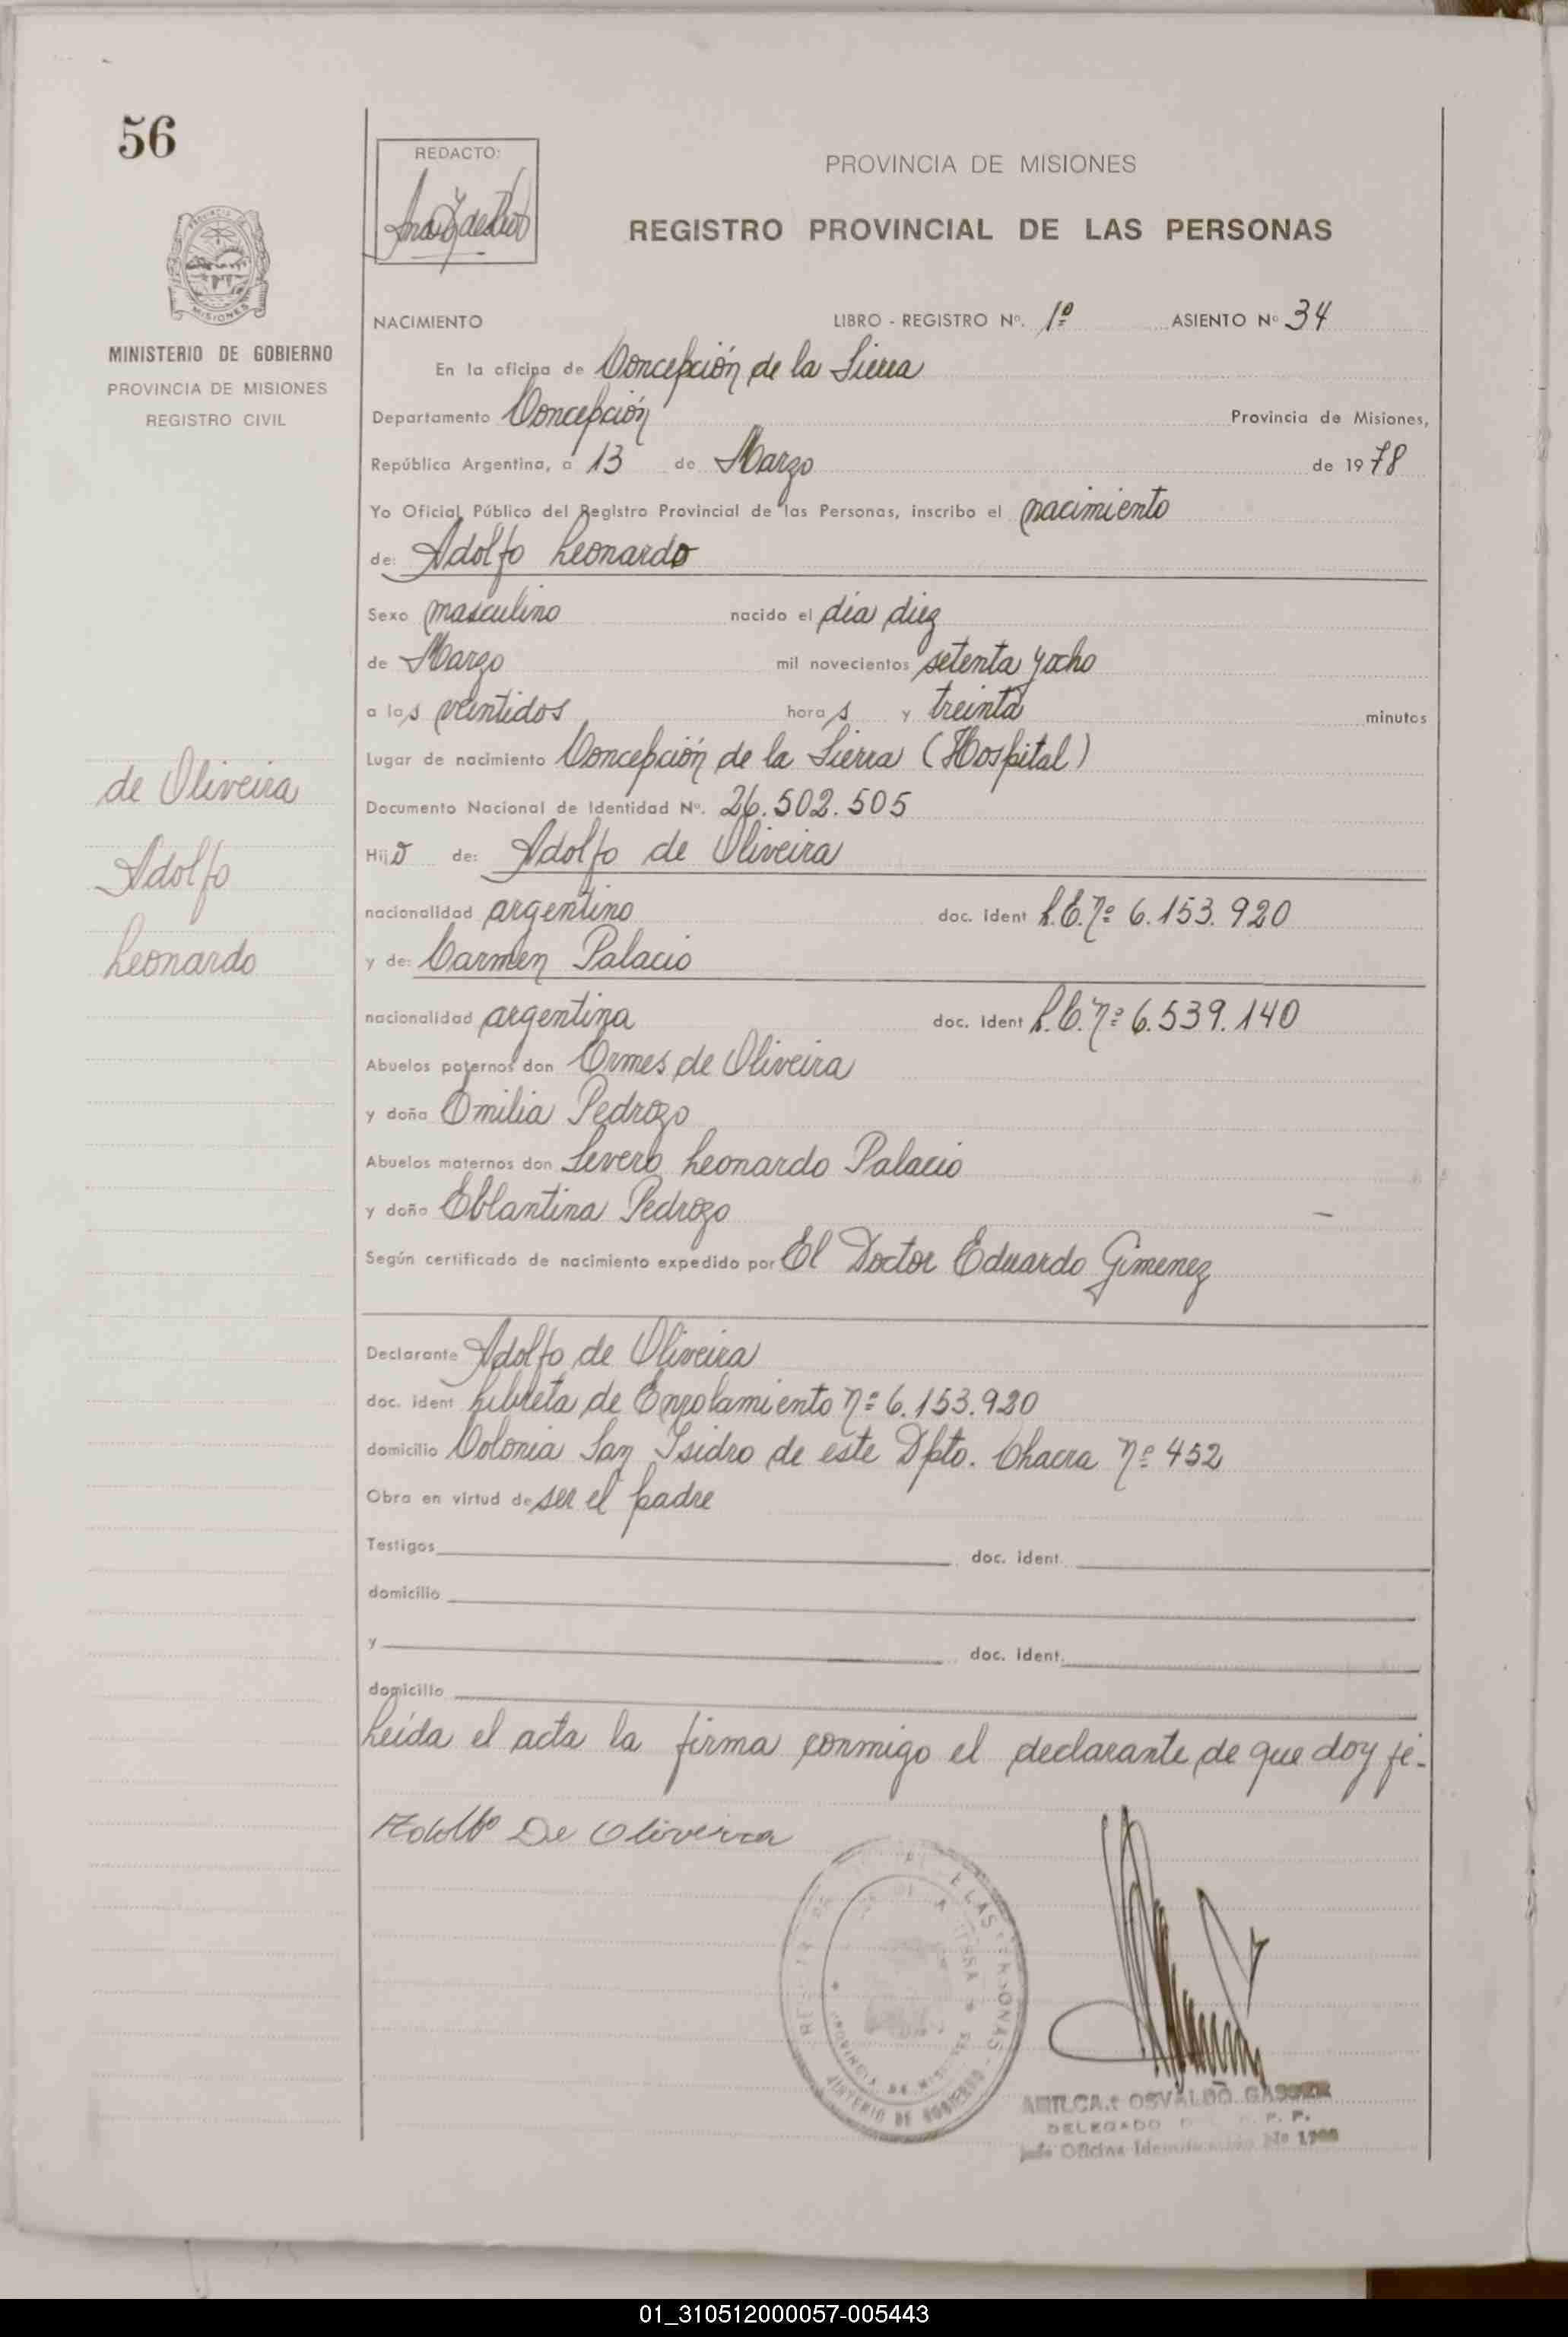 56
REDACTO:
PROVINCIA DE MISIONES
REGISTRO PROVINCIAL DE LAS PERSONAS
MISIONES
MINISTERIO DE GOBIERNO
PROVINCIA DE MISIONES
REGISTRO CIVIL
NACIMIENTO LIBRO - REGISTRO Nº. 1º ASIENTO Nº 34
En la oficina de Concepción de la Sierra
Departamento Concepción Provincia de Misiones,
República Argentina, a 13 de Marzo de 1978
Yo Oficial Público del Registro Provincial de las Personas, inscribo el nacimiento
de: Adolfo Leonardo
Sexo masculino nacido el día diez
de Marzo mil novecientos setenta y ocho
a las veintidos horas y treinta minutos
Lugar de nacimiento Concepción de la Sierra (Hospital)
Documento Nacional de Identidad Nº. 26.502.505
Hijo de: Adolfo de Oliveira
nacionalidad argentino doc. ident L.E. nº 6.153.920
y de: Carmen Palacio
nacionalidad argentina doc. ident L.C. nº 6.539.140
Abuelos paternos don Ormes de Oliveira
y doña Emilia Pedrozo
Abuelos maternos don Severo Leonardo Palacio
y doña Eblantina Pedrozo
Según certificado de nacimiento expedido por El Doctor Eduardo Gimenez
de Oliveira
Adolfo
Leonardo
Declarante Adolfo de Oliveira
doc. ident Libreta de Enrolamiento nº 6.153.920
domicilio Colonia San Isidro de este Dpto. Chacra nº 452
Obra en virtud de ser el padre
Testigos doc. ident.
domicilio
y doc. ident.
domicilio
Leída el acta la firma conmigo el declarante de que doy fé.
Adolfo De Oliveira
LAS PERSONAS
PROVINCIA DE MISIONES
MINISTERIO DE GOBIERNO
OSVALDO GASSER
DELEGADO R. P. P.
Jefe Oficina Identificación Nº
01_310512000057-005443